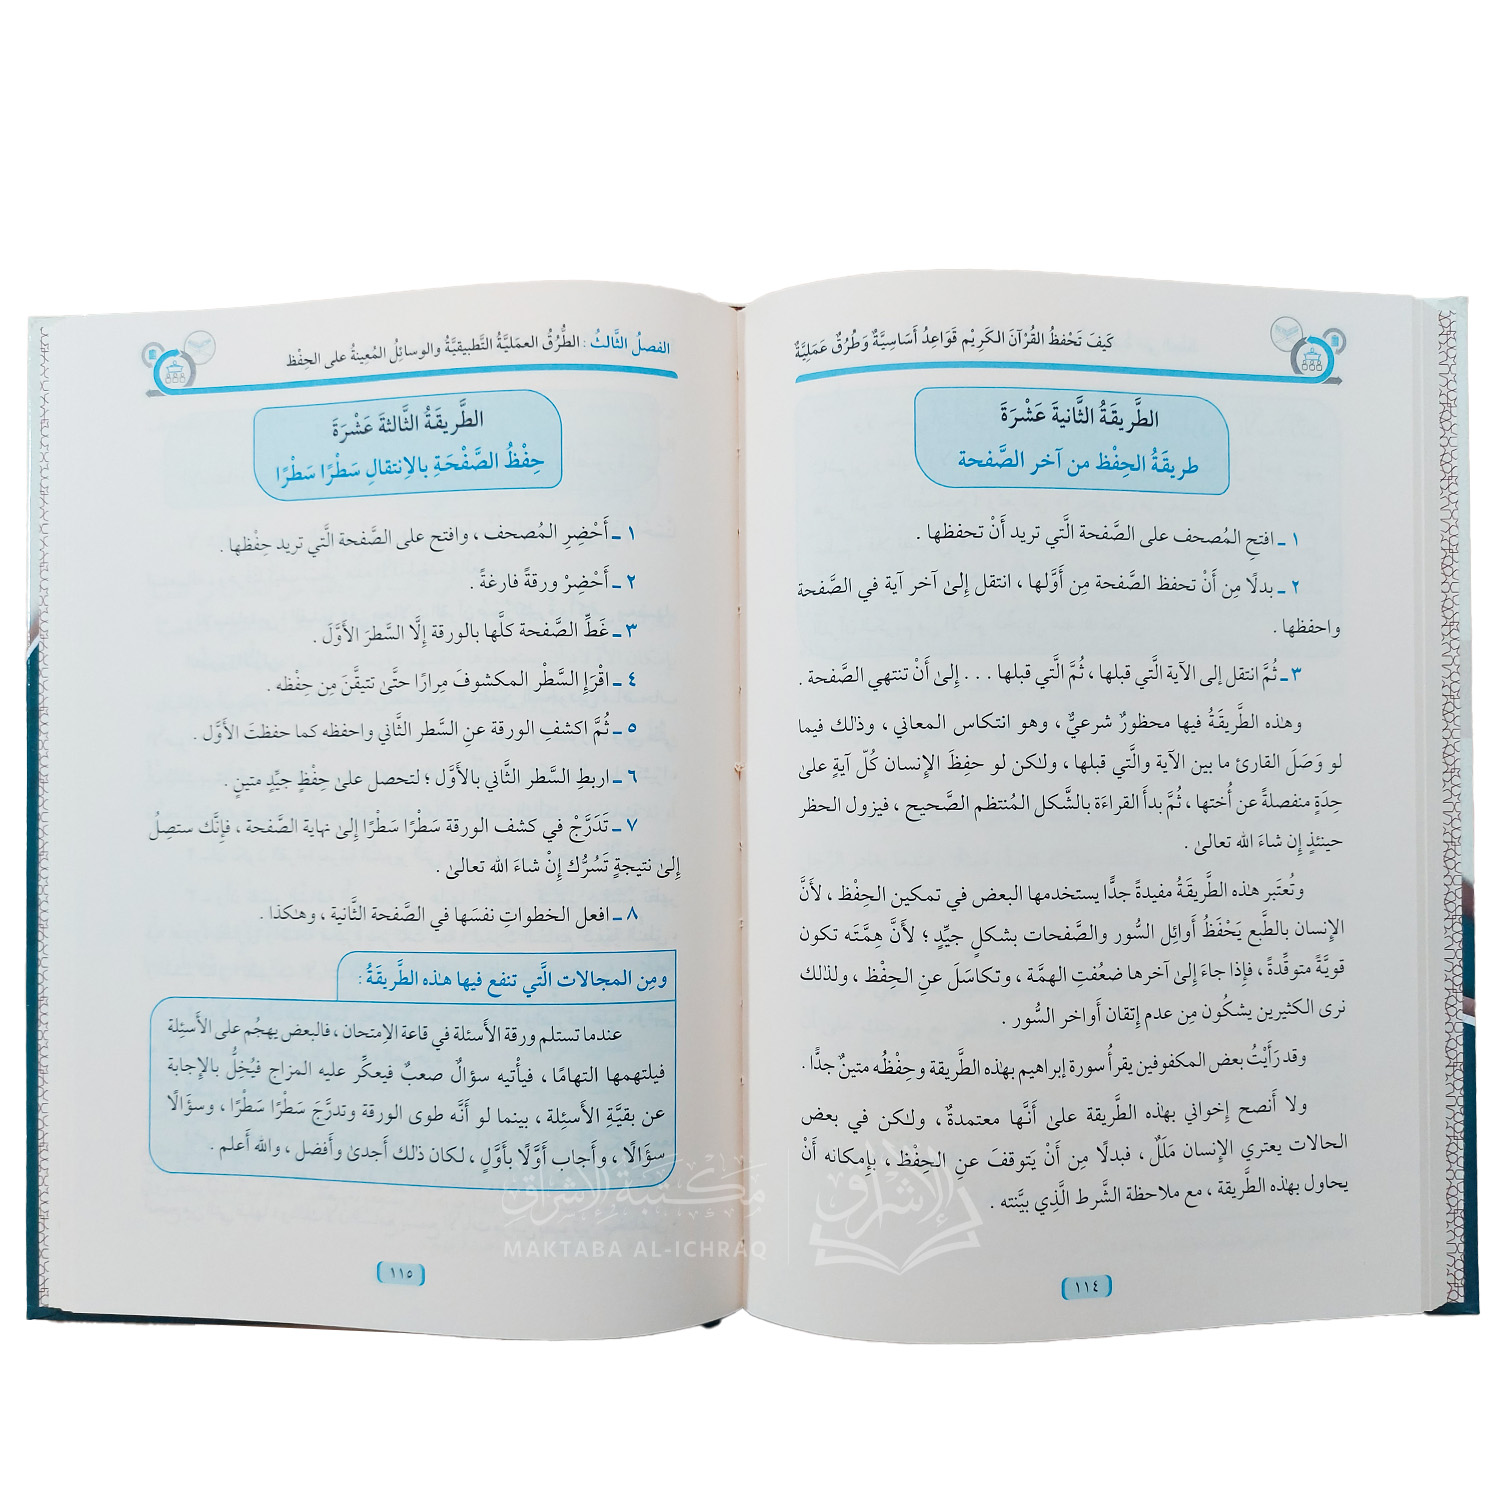 كَيفَ تَحْفظُ القُرْآنَ الكَرِيْم قَوَاعِدُ أَسَاسِيَّةٌ وَطُرُقٌ عَمَلِيَّةٌ
الطَّريقَةُ الثَّانيةَ عَشْرَةَ
طريقَةُ الحِفْظ من آخر الصَّفحة
١ ـ افتحِ المُصحف على الصَّفحة الَّتي تريد أَنْ تحفظها .
٢ ـ بدلًا مِن أَنْ تحفظ الصَّفحة مِن أَوَّلها ، انتقل إِلىٰ آخر آية في الصَّفحة
واحفظها .
٣ ـ ثُمَّ انتقل إلى الآية الَّتي قبلها ، ثُمَّ الَّتي قبلها . . . إِلىٰ أَنْ تنتهي الصَّفحة .
وهٰذه الطَّريقَةُ فيها محظورٌ شرعيٌّ ، وهو انتكاس المعاني ، وذٰلك فيما
لو وَصَلَ القارئ ما بين الآية والَّتي قبلها ، ولٰكن لو حفِظَ الإِنسان كُلّ آيةٍ علىٰ
حِدَةٍ منفصلةً عن أُختها ، ثُمَّ بدأَ القراءَة بالشَّكل المُنتظم الصَّحيح ، فيزول الحظر
حينئذٍ إِن شاءَ الله تعالىٰ .
وتُعتَبر هٰذه الطَّريقَةُ مفيدةً جدًّا يستخدمها البعض في تمكين الحِفْظ ، لأَنَّ
الإِنسان بالطَّبع يَحْفَظُ أَوائل السُّور والصَّفحات بشكلٍ جيِّدٍ ؛ لأَنَّ هِمَّتَه تكون
قويَّةً متوقِّدةً ، فإِذا جاءَ إِلىٰ آخرها ضعُفتِ الهمَّة ، وتكاسَلَ عنِ الحِفْظ ، ولذٰلك
نرى الكثيرين يشكُون مِن عدم إِتقان أَواخر السُّور .
وقد رَأَيْتُ بعض المكفوفين يقرأُ سورة إبراهيم بهٰذه الطَّريقة وحِفْظُه متينٌ جدًّا .
ولا أَنصح إِخواني بهٰذه الطَّريقة علىٰ أَنَّها معتمدةٌ ، ولٰكن في بعض
الحالات يعتري الإِنسان مَلَلٌ ، فبدلًا مِن أَنْ يَتوقفَ عنِ الحِفْظ ، بإِمكانه أَنْ
يحاول بهٰذه الطَّريقة ، مع ملاحظة الشَّرط الَّذِي بيَّنته .
١١٤
الفصلُ الثَّالثُ : الطُّرُقُ العمَليَّةُ التَّطبيقيَّةُ والوسائِلُ المُعينةُ على الحِفْظ
الطَّريقَةُ الثَّالثةَ عَشْرَةَ
حِفْظُ الصَّفْحَةِ بالاِنتقالِ سَطْرًا سَطْرًا
١ ـ أَحْضِرِ المُصحف ، وافتح على الصَّفحة الَّتي تريد حِفْظها .
٢ ـ أَحْضِرْ ورقةً فارغةً .
٣ ـ غَطِّ الصَّفحة كلَّها بالورقة إِلَّا السَّطرَ الأَوَّلَ .
٤ ـ اقْرَإِ السَّطْر المكشوفَ مِرارًا حتَّىٰ تتيقَّنَ مِن حِفْظه .
٥ ـ ثُمَّ اكشفِ الورقة عنِ السَّطر الثَّاني واحفظه كما حفظتَ الأَوَّل .
٦ ـ اربطِ السَّطر الثَّاني بالأَوَّل ؛ لتحصل علىٰ حِفْظٍ جيِّدٍ متينٍ .
٧ ـ تَدَرَّجْ في كشف الورقة سَطْرًا سَطْرًا إِلىٰ نهاية الصَّفحة ، فإِنَّك ستصِلُ
إِلىٰ نتيجةٍ تَسُرُّك إِنْ شاءَ الله تعالىٰ .
٨ ـ افعل الخطواتِ نفسَها في الصَّفحة الثَّانية ، وهٰكذا .
ومِن المجالات الَّتي تنفع فيها هٰذه الطَّريقَةُ :
عندما تستلم ورقة الأَسئلة في قاعة الاِمتحان ، فالبعض يهجُم على الأَسئلة
فيلتهمها التهامًا ، فيأْتيه سؤالٌ صعبٌ فيعكِّر عليه المزاج فيُخِلُّ بالإِجابة
عن بقيَّةِ الأَسئلة ، بينما لو أَنَّه طوى الورقة وتدرَّجَ سَطْرًا سَطْرًا ، وسؤَالًا
سؤَالًا ، وأَجاب أَوَّلًا بأَوَّلٍ ، لكان ذٰلك أَجدىٰ وأَفضل ، والله أَعلم .
١١٥
مكتبة الإشراق
MAKTABA AL-ICHRAQ
الإشراق